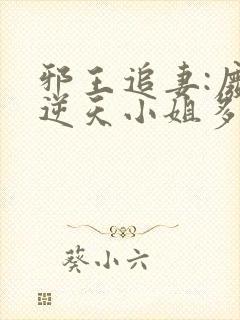 邪王追妻:
逆天小姐
葵小六